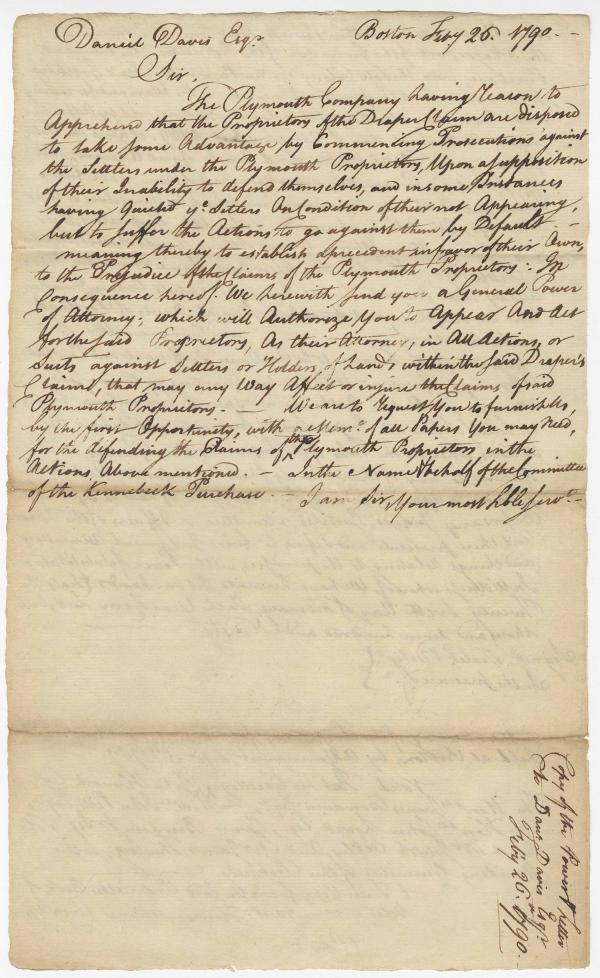 Daniel Davis Esqr. Boston Feby 26. 1790. -
Sir,
The Plymouth Company having reason to
Apprehend that the Proprietors of the Draper Claim are disposed
to take some Advantage by Commencing Prosecutions against
the Settlers under the Plymouth Proprietors, Upon a supposition
of their Inability to defend themselves, and in some Instances
having quieted ye. Setlers On Condition of their not Appearing,
but to suffer the Actions to go against them by Default -
meaning thereby to establish a precedent in favor of their Own,
to the Prejudice of the Claims of the Plymouth Proprietors. In
Consequence hereof. We herewith send you a General Power
of Attorney, which will Authorize You to Appear And Act
for the said Proprietors, As their Attorney, in All Actions, or
Suits against Settlers or Holders, of Lands within the said Draper's
Claims, that may any Way Affect or injure the Claims of said
Plymouth Proprietors. - We are to request You to furnish Us,
by the first Opportunity, with a Mem. of all Papers You may Need,
for the defending the Claims of the Plymouth Proprietors in the
Actions, Above mentioned. - In the Name & behalf of the Committee
of the Kennebeck Purchase - I am Sir, Your most Hble Servt. -
Copy of the Power & Letter
to Danl. Davis Esqr.
Feby 26. 1790.